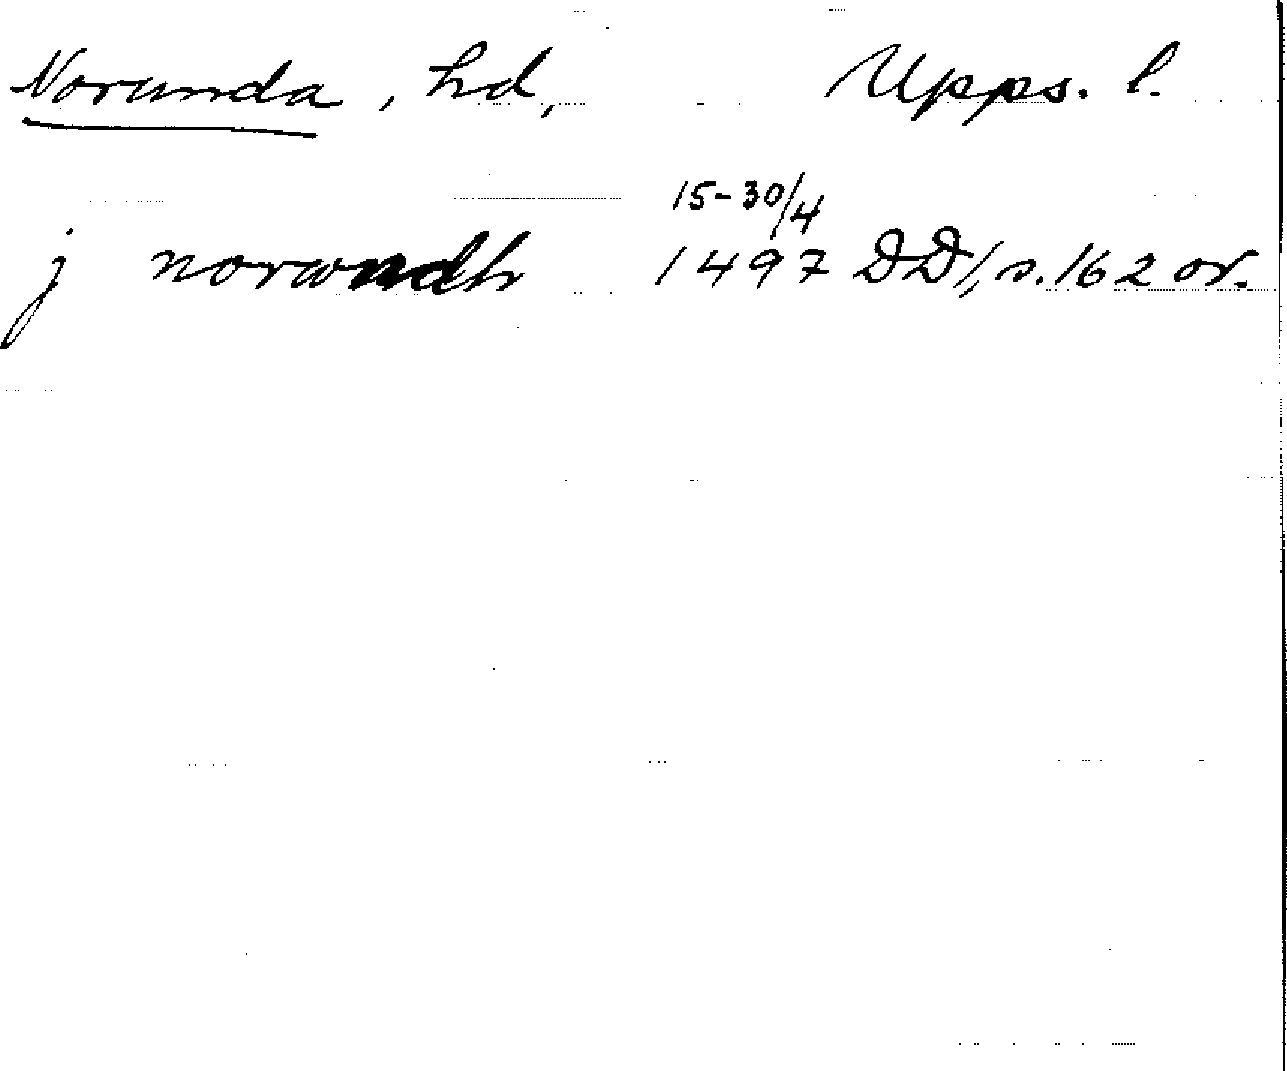 Norunda, hd, Upps. l.
15-30/4
j norwndh 1497 DD 1, s. 162 or.